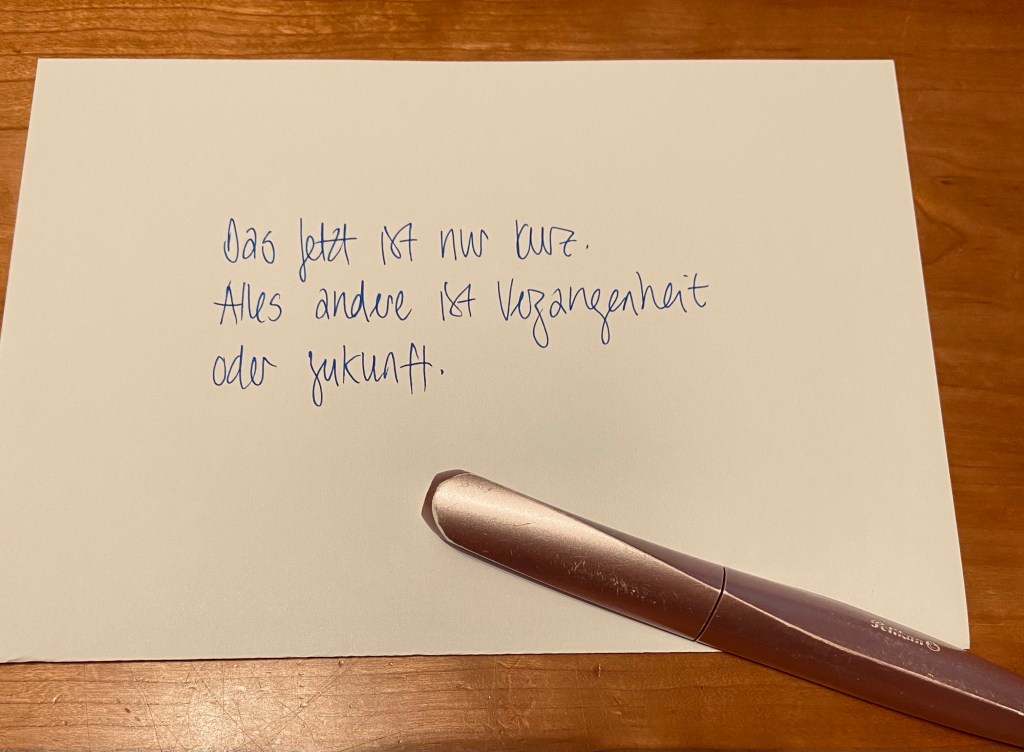 Das Jetzt ist nur kurz.
Alles andere ist Vergangenheit
oder Zukunft.
Pelikan